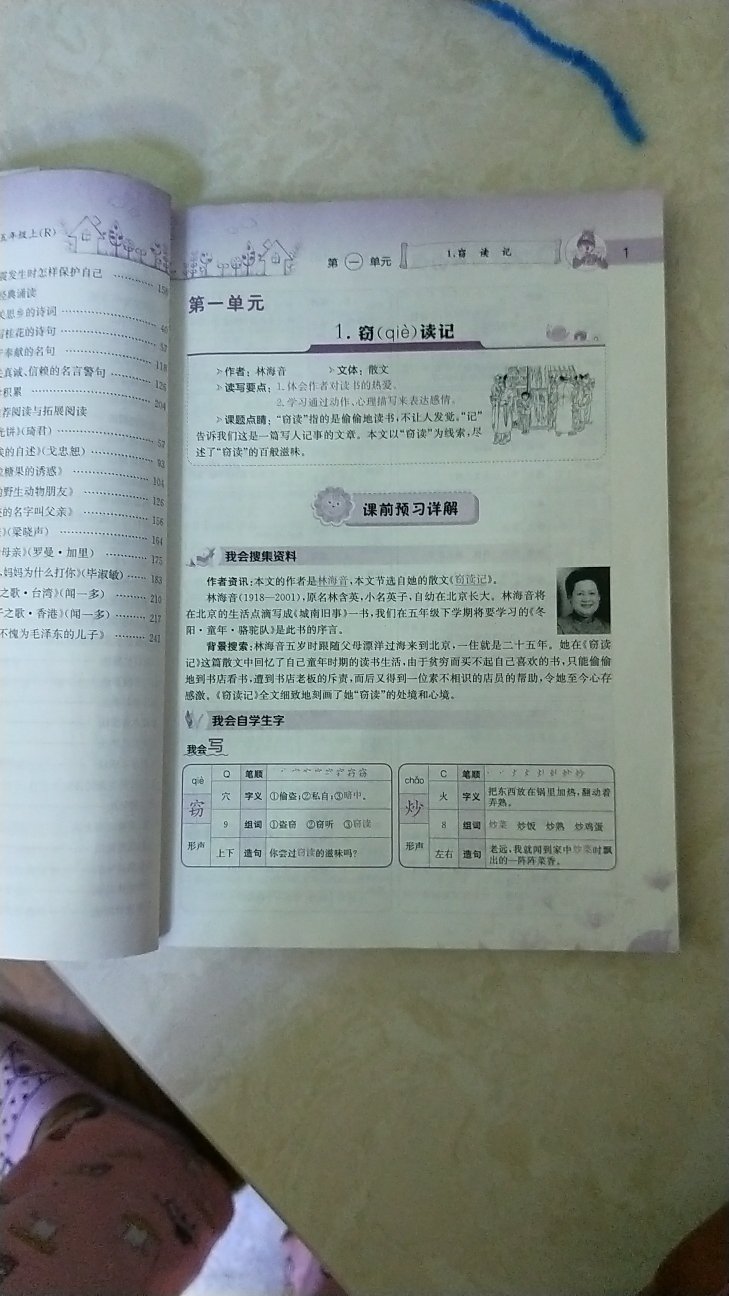 五年级上(R)
震发生时怎样保护自己 ………… 158
经典诵读
关思乡的诗词 ………… 40
写桂花的诗句 ………… 57
奉献的名句 ………… 118
真诚、信赖的名言警句 ………… 126
积累 ………… 204
荐阅读与拓展阅读
光饼》(琦君) ………… 57
的自述》(戈忠恕) ………… 93
糖果的诱惑》 ………… 104
野生动物朋友》 ………… 126
的名字叫父亲》 ………… 156
》(梁晓声) ………… 164
母亲》(罗曼·加里) ………… 175
妈妈为什么打你》(毕淑敏) ………… 183
之歌·台湾》(闻一多) ………… 210
子之歌·香港》(闻一多) ………… 217
不愧为毛泽东的儿子》 ………… 241
第一单元 1.窃 读 记 1
第一单元
1.窃(qiè)读记
作者：林海音 文体：散文
读写要点：1.体会作者对读书的热爱。
2.学习通过动作、心理描写来表达感情。
课题点睛：“窃读”指的是偷偷地读书,不让人发觉。“记”
告诉我们这是一篇写人记事的文章。本文以“窃读”为线索,尽
述了“窃读”的百般滋味。
课前预习详解
我会搜集资料
作者资讯:本文的作者是林海音,本文节选自她的散文《窃读记》。
林海音(1918—2001),原名林含英,小名英子,自幼在北京长大。林海音将
在北京的生活点滴写成《城南旧事》一书,我们在五年级下学期将要学习的《冬
阳·童年·骆驼队》是此书的序言。
背景搜索:林海音五岁时跟随父母漂洋过海来到北京,一住就是二十五年。她在《窃读
记》这篇散文中回忆了自己童年时期的读书生活,由于贫穷而买不起自己喜欢的书,只能偷偷
地到书店看书,遭到书店老板的斥责,而后又得到一位素不相识的店员的帮助,令她至今心存
感激。《窃读记》全文细致地刻画了她“窃读”的处境和心境。
我会自学生字
我会写
qiè Q 笔顺
窃 穴 字义 ①偷盗;②私自;③暗中。
9 组词 ①盗窃 ②窃听 ③窃读
形声 上下 造句 你尝过窃读的滋味吗?
chǎo C 笔顺
炒 火 字义 把东西放在锅里加热,翻动着
弄熟。
8 组词 炒菜 炒饭 炒熟 炒鸡蛋
形声 左右 造句 老远,我就闻到家中炒菜时飘
出的一阵阵菜香。